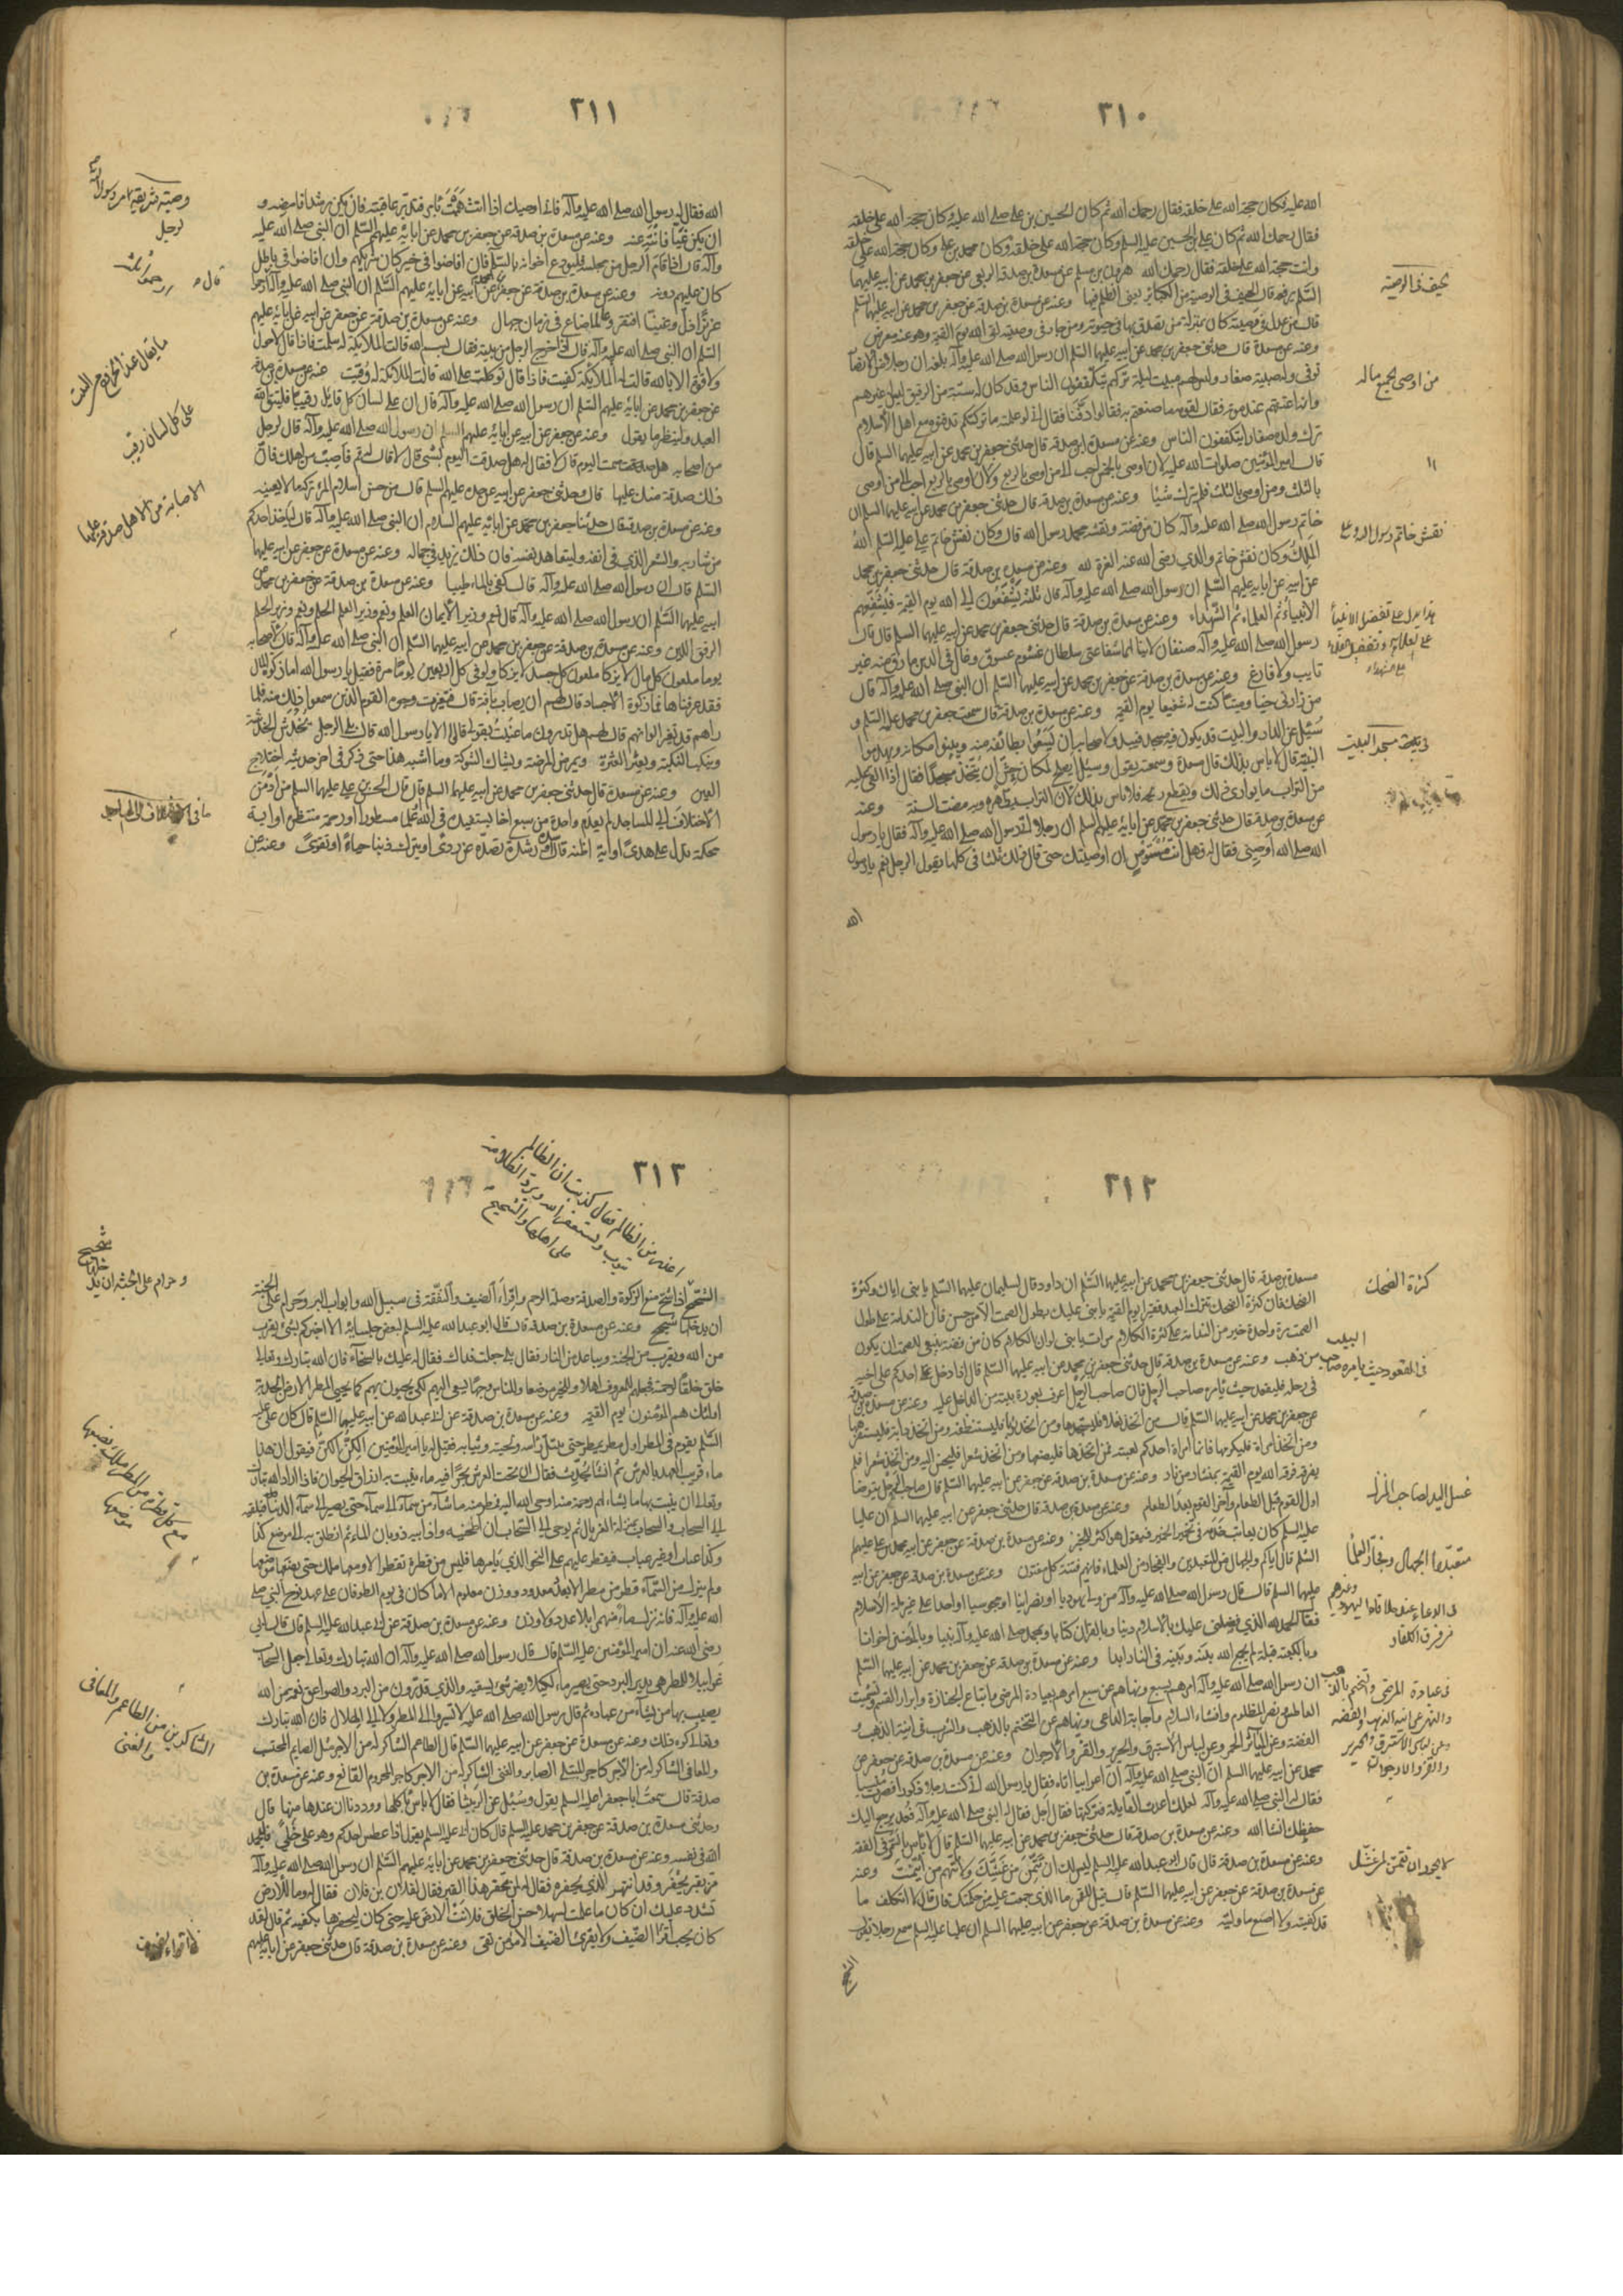 ٣١٠
الله عليه فكان حجة الله على خلقه فقال رحمك الله ثم كان الحسين بن علي صلى الله عليه كان حجة الله على خلقه
فقال رحمك الله ثم كان علي بن الحسين عليه السلم وكان حجة الله على خلقه وكان محمد بن علي وكان حجة الله على خلقه
وانت حجة الله على خلقه فقال رحمك الله هرون بن مسلم عن مسعدة بن صدقة الربعي عن جعفر بن محمد عن ابيه عليهما
السلم رفعه قال الحيف في الوصية من الكبائر يعني الظلم فيها وعنه عن مسعدة بن صدقة عن جعفر بن محمد عن ابيه عليهما السلم
قال من عدل في وصيته كان بمنزلة من تصدق بها في حيوته ومن جار في وصيته لقى الله يوم القيمة وهو عنه معرض
وعنه عن مسعدة قال حدثني جعفر بن محمد عن ابيه عليهما السلم ان رسول الله صلى الله عليه وآله بلغه ان رجلا من الانصار
توفى وله صبية صغار وليس لهم مبيت ليلة تركهم يتكففون الناس وقد كان له ستة من الرقيق ليس له غيرهم
وانه اعتقهم عند موته فقال لقومه ما صنعتم به فقالوا دفناه فقال اني لو علمته ما تركتكم تدفنونه مع اهل الاسلام
ترك ولده صغارا يتكففون الناس وعنه عن مسعدة بن صدقة قال حدثني جعفر بن محمد عن ابيه عليهما السلم قال
قال امير المؤمنين صلوات الله عليه لان اوصى بالخمس احب الي من اوصى بالربع ولان اوصى بالربع احب الي من اوصى
بالثلث ومن اوصى بالثلث فلم يترك شيئا وعنه عن مسعدة بن صدقة قال حدثني جعفر بن محمد عن ابيه عليهما السلم ان
خاتم رسول الله صلى الله عليه وآله كان من فضة ونقشه محمد رسول الله قال وكان نقش خاتم علي عليه السلم الله
الملك وكان نقش خاتم والدي رضى الله عنه العزة لله وعنه عن مسعدة بن صدقة قال حدثني جعفر بن محمد
عن ابيه عن ابايه عليهم السلم ان رسول الله صلى الله عليه وآله قال ثلثة يشفعون الى الله يوم القيمة فيشفعهم
الانبياء ثم العلماء ثم الشهداء وعنه عن مسعدة بن صدقة قال حدثني جعفر بن محمد عن ابيه عليهما السلم قال قال
رسول الله صلى الله عليه وآله صنفان لا ينالهما شفاعتي سلطان غشوم عسوف وغال في الدين مارق منه غير
تايب ولا فازع وعنه عن مسعدة بن صدقة عن جعفر بن محمد عن ابيه عليهما السلم ان النبي صلى الله عليه وآله قال
من زارني حيا وميتا كنت له شفيعا يوم القيمة وعنه عن مسعدة بن صدقة قال سمعت جعفر بن محمد عليه السلم و
سئل عن الدار والبيت قد يكون فيه مسجد فيبدو لاصحابه ان يتسعوا بطائفة منه ويبنوا مكانه ويهدموا
البنية قال لا باس بذلك قال مسعدة وسمعته يقول وسئل ايصلح لمكان حش ان يتخذ مسجدا فقال اذا القي عليه
من التراب ما يواري ذلك ويقطع ريحه فلا باس بذلك لان التراب يطهره وبه مضت السنة وعنه
عن مسعدة بن صدقة قال حدثني جعفر بن محمد عن ابايه عليهم السلم ان رجلا اتى رسول الله صلى الله عليه وآله فقال يا رسول
الله صلى الله اوصني فقال له فهل انت مستوص ان اوصيتك حتى قال ذلك ثلثا في كلها يقول الرجل نعم يا رسول
الله
حيف في الوصية
من اوصى لجميع ماله
نقش خاتم رسول الله وع
هذا يدل على تفضيل الانبياء
على العلماء وتفضيل العلماء
على شهداء
في بحث مسجد البيت
٣١١
الله فقال له رسول الله صلى الله عليه وآله فاني اوصيك اذا انت هممت بامر فتدبر عاقبته فان يكن رشدا فامضه و
ان يكن غيا فانته عنه وعنه عن مسعدة بن صدقة عن جعفر بن محمد عن ابايه عليهم السلم ان النبي صلى الله عليه
وآله قال اذا قام الرجل من مجلسه فليودع اخوانه بالسلم فان افاضوا في خير كان شريكهم وان افاضوا في باطل
كان عليهم دونه وعنه عن مسعدة بن صدقة عن جعفر بن محمد عن ابيه عن ابايه عليهم السلم ان النبي صلى الله عليه وآله قال ارحموا
عزيزا ذل وغنيا افتقر وعالما ضاع في زمان جهال وعنه عن مسعدة بن صدقة عن جعفر عن ابيه عن ابايه عليهم
السلم ان النبي صلى الله عليه وآله قال اذا خرج الرجل من بيته فقال بسم الله قالت الملائكة له سلمت فاذا قال لا حول
ولا قوة الا بالله قالت له الملائكة كفيت فاذا قال توكلت على الله قالت الملائكة له وقيت عنه عن مسعدة بن صدقة
عن جعفر بن محمد عن ابايه عليهم السلم ان رسول الله صلى الله عليه وآله قال ان على لسان كل قايل رقيبا فليتق الله
العبد ولينظر ما يقول وعنه عن جعفر عن ابيه عن ابايه عليهم السلم ان رسول الله صلى الله عليه وآله قال لرجل
من اصحابه هل صمت اليوم قال لا فقال له هل صدقت اليوم بشى قال لا قال له قم فاصب من اهلك فان
ذلك صدقة منك عليها قال وحدثني جعفر عن ابيه عن جده عليهم السلم قال من حسن اسلام المرء تركه ما لا يعنيه
وعنه عن مسعدة بن صدقة قال حدثنا جعفر بن محمد عن ابايه عليهم السلام ان النبي صلى الله عليه وآله قال لياخذ احدكم
من شاربه والشعر الذي في انفه وليتعاهد نفسه فان ذلك يزيد في جماله وعنه عن مسعدة عن جعفر عن ابيه عليهما
السلم قال ان رسول الله صلى الله عليه وآله قال كفى بالماء طيبا وعنه عن مسعدة بن صدقة عن جعفر بن محمد عن
ابيه عليهما السلم ان رسول الله صلى الله عليه وآله قال نعم وزير الايمان العلم ونعم وزير العلم الحلم ونعم وزير الحلم
الرفق اللين وعنه عن مسعدة بن صدقة عن جعفر بن محمد عن ابيه عليهما السلم ان النبي صلى الله عليه وآله قال لاصحابه
يوما ملعون كل مال لا يزكا ملعون كل جسد لا يزكا ولو في كل اربعين يوما مرة فقيل يا رسول الله اما زكوة المال
فقد عرفناها فما زكوة الاجساد قال لهم ان يصاب بآفة قال فتغيرت وجوه القوم الذين سمعوا ذلك منه فلما
راهم قد تغير الوانهم قال لهم هل تدرون ما عنيت بقولي قالوا لا يا رسول الله قال بلى الرجل يخدش الخدشة
وينكب النكبة ويعثر العثرة ويمرض المرضة ويشاك الشوكة وما اشبه هذا حتى ذكر في اخر حديثه اختلاج
العين وعنه عن مسعدة قال حدثني جعفر بن محمد عن ابيه عليهما السلم قال قال الحسن بن علي عليهما السلم من ادمن
الاختلاف الى المساجد لم يعدم واحدة من سبع اخا يستفيده في الله او علما مستطرفا او رحمة منتظرة او اية
محكمة تدل على هدى او اية رشدة تصده عن ردى او يترك ذنبا حياء او تقوى وعنه عن
وصية شريفة من رسول الله ص
لرجل
قال ص ارحموا ثلث
ما يقال عند الخروج من البيت
على كل لسان رقيب
الاصابة من الاهل صدقة عليها
ما في الاختلاف الى المساجد
٣١٢
مسعدة بن صدقة قال حدثني جعفر بن محمد عن ابيه عليهما السلم ان داود قال لسليمان عليهما السلم يا بني اياك وكثرة
الضحك فان كثرة الضحك تترك العبد فقيرا يوم القيمة يا بني عليك بطول الصمت الا من حسن فان الندامة على طول
الصمت مرة واحدة خير من الندامة على كثرة الكلام مرات يا بني لو ان الكلام كان من فضة ينبغي للصمت ان يكون
من ذهب وعنه عن مسعدة بن صدقة قال حدثني جعفر بن محمد عن ابيه عليهما السلم قال اذا دخل احدكم على اخيه
في رحله فليقعد حيث يامره صاحب الرحل فان صاحب الرحل اعرف بعورة بيته من الداخل عليه وعنه عن مسعدة بن صدقة
عن جعفر بن محمد عن ابيه عليهما السلم قال من اتخذ نعلا فليستجدها ومن اتخذ ثوبا فليستنظفه ومن اتخذ دابة فليستفرهها
ومن اتخذ امراة فليكرمها فانما امراة احدكم لعبته فمن اتخذها فليضعها ومن اتخذ شعرا فليحسن اليه ومن اتخذ شعرا فلم
يفرقه فرقه الله يوم القيمة بمنشار من نار وعنه عن مسعدة بن صدقة عن جعفر عن ابيه عليهما السلم قال صاحب الرحل يتوضا
اول القوم قبل الطعام وآخر القوم بعد الطعام وعنه عن مسعدة بن صدقة قال حدثني جعفر عن ابيه عليهما السلم ان عليا
عليه السلم كان يعاتب خدمه في تخمير الخمير فيقول هو اكثر للخبز وعنه عن مسعدة بن صدقة عن جعفر عن ابيه محمد بن علي عليهم
السلم قال اياكم والجهال من المتعبدين والفجار من العلماء فانهم فتنة كل مفتون وعنه عن مسعدة بن صدقة عن جعفر عن ابيه
عليهما السلم قال قال رسول الله صلى الله عليه وآله من راى يهوديا او نصرانيا او مجوسيا او احدا على غير ملة الاسلام
فقال الحمد لله الذي فضلني عليك بالاسلام دينا وبالقران كتابا وبمحمد صلى الله عليه وآله نبيا وبالمؤمنين اخوانا
وبالكعبة قبلة لم يجمع الله بينه وبينه في النار ابدا وعنه عن مسعدة بن صدقة عن جعفر بن محمد عن ابيه عليهما السلم
ان رسول الله صلى الله عليه وآله امرهم بسبع ونهاهم عن سبع امرهم بعيادة المرضى واتباع الجنازة وابرار القسم وتسميت
العاطس ونصر المظلوم وافشاء السلام واجابة الداعي ونهاهم عن التختم بالذهب والشرب في انية الذهب و
الفضة وعن المياثر الحمر وعن لباس الاستبرق والحرير والقز والارجوان وعنه عن مسعدة بن صدقة عن جعفر بن
محمد عن ابيه عليهما السلم ان النبي صلى الله عليه وآله ان اعرابيا اتاه فقال يا رسول الله اني كنت رجلا ذكورا فصرت نسيا
فقال له النبي صلى الله عليه وآله لعلك اعتدت القايلة فتركتها فقال اجل فقال له النبي صلى الله عليه وآله فعد يرجع اليك
حفظك انشا الله وعنه عن مسعدة بن صدقة قال حدثني جعفر بن محمد عن ابيه عليهما السلم قال لا باس
وعنه عن مسعدة بن صدقة قال قال ابو عبد الله عليه السلم ليس لك ان تتمن من غشك ولا تتهم من ائتمنت وعنه
عن مسعدة بن صدقة عن جعفر عن ابيه عليهما السلم قال قيل للقمن ما الذي جمعت عليه من حكمتك قال قال لا اتكلف ما
قد كفيته ولا اضيع ما وليته وعنه عن مسعدة بن صدقة عن جعفر عن ابيه عليهما السلم ان عليا عليه السلم سمع رجلا يقول
الشحيح
كثرة الضحك
في القعود حيث يامره صاحب
البيت
غسل اليد لصاحب المنزل
متعبد الجهال وفجار العلماء
في الدعاء عند ملاقات اليهود وغيرهم
من فرق الكفار
في عيادة المرضى وتختم بالذهب
والشرب في انية الذهب والفضة
وعن لباس الاستبرق والحرير
والقز والارجوان
لا يجوز ان تتمن من غشك
٣١٣
اعذر من الظالم فقال كذبت ان الظالم
يتوب ويستغفر الله ويرد الظلامة
على اهلها والشحيح
الشحيح اذا شح منع الزكوة والصدقة وصلة الرحم واقراء الضيف والنفقة في سبيل الله وابواب البر وحرام على الجنة
ان يدخلها شحيح وعنه عن مسعدة بن صدقة قال قال ابو عبد الله عليه السلم لبعض جلسايه الا اخبركم بشيء يقرب
من الله ويقرب من الجنة ويباعد من النار فقال بلى جعلت فداك فقال له عليك بالسخاء فان الله تبارك وتعالى
خلق خلقا لرحمته فجعلهم للمعروف اهلا وللخير موضعا وللناس وجها يسعى اليهم لكي يحيون بهم كما يحيي المطر الارض المجدبة
اولئك هم المؤمنون يوم القيمة وعنه عن مسعدة بن صدقة عن ابي عبد الله عن ابيه عليهما السلم قال كان علي عليه
السلم يقوم في المطر اول مطر يمطر حتى يبتل راسه ولحيته وثيابه فيقال له يا امير المؤمنين الكن الكن فيقول ان هذا
ماء قريب العهد بالعرش ثم انشا يحدث فقال ان تحت العرش بحرا فيه ماء ينبت به ارزاق الحيوان فاذا اراد الله تبارك
وتعالى ان ينبت بها ما يشاء لهم رحمة منه اوحى الله اليه فمطر منه ما شاء من سماء الى سماء حتى يصير الى سماء الدنيا فيلقيه
الى السحاب والسحاب بمنزلة الغربال ثم يوحى الى السحاب ان اطحنيه واذابيه ذوبان الماء ثم انطلق به الى موضع كذا
وكذا عباب او غير عباب فيقطر عليهم على النحو الذي يامرها فليس من قطرة تقطر الا ومعها ملك حتى يضعها موضعها
ولم ينزل من السماء قطر من مطر الا بعدد معدود ووزن معلوم الا ما كان في يوم الطوفان على عهد نوح النبي صلى
الله عليه وآله فانه نزل ماء منهمر بلا عدد ولا وزن وعنه عن مسعدة بن صدقة عن ابي عبد الله عليه السلم قال قال لي ابي
رضى الله عنه ان امير المؤمنين عليه السلم قال قال رسول الله صلى الله عليه وآله ان الله تبارك وتعالى جعل السحاب
غرابيل للمطر هي تذيب البرد حتى يصير ماء لكيلا يضر شى يصيبه والذي قد ترون من البرد والصواعق نقمة من الله
يصيب بها من يشاء من عباده ثم قال رسول الله صلى الله عليه لا تشيروا الى المطر ولا الى الهلال فان الله تبارك
وتعالى يكره ذلك وعنه عن مسعدة عن جعفر عن ابيه عليهما السلم قال الطاعم الشاكر له من الاجر مثل الصايم المحتسب
والمعافى الشاكر له من الاجر كاجر المبتلى الصابر والغنى الشاكر له من الاجر كاجر المحروم القانع وعنه عن مسعدة بن
صدقة قال سمعت ابا جعفر عليه السلم يقول وسئل عن الربيثا فقال لا باس باكلها ووددنا ان عندنا منها قال
وحدثني مسعدة بن صدقة عن جعفر بن محمد عليه السلم قال كان ابي عليه السلم يقول اذا عطس احدكم وهو على خلاء فليحمد
الله في نفسه وعنه عن مسعدة بن صدقة قال حدثني جعفر بن محمد عن ابايه عليهم السلم ان رسول الله صلى الله عليه وآله
مر بقبر يحفر وقد انبهر الذي يحفره فقال له لمن تحفر هذا القبر فقال لفلان بن فلان فقال وما للارض
تشدد عليك ان كان ما علمت لسهلا حسن الخلق فلانت الارض عليه حتى كان ليحفرها بكفيه ثم قال لقد
كان يحب اقراء الضيف ولا يقرى الضيف الا مؤمن تقى وعنه عن مسعدة بن صدقة قال حدثني جعفر عن ابايه عليهم
وحرام على الجنة ان يدخلها
شحيح
مع كل قطرة من المطر ملك يضعها
موضعها
الشاكرين من الطاعم والمعافى
والغنى